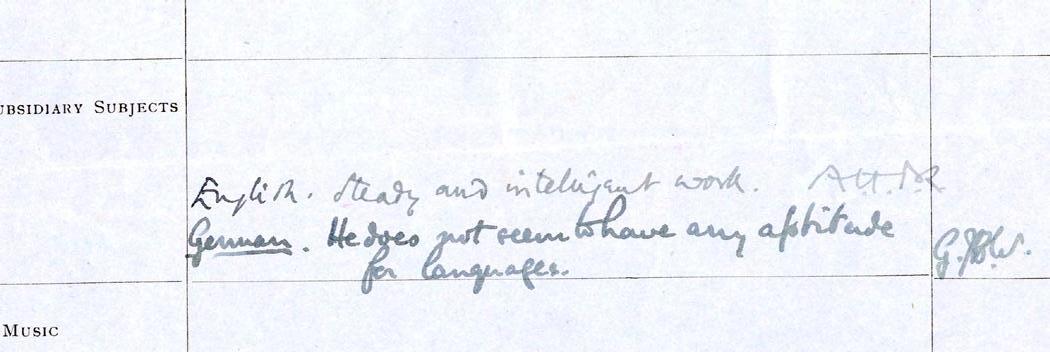 UBSIDIARY SUBJECTS
English. Steady and intelligent work.
German. He does not seem to have any aptitude
for languages.
MUSIC